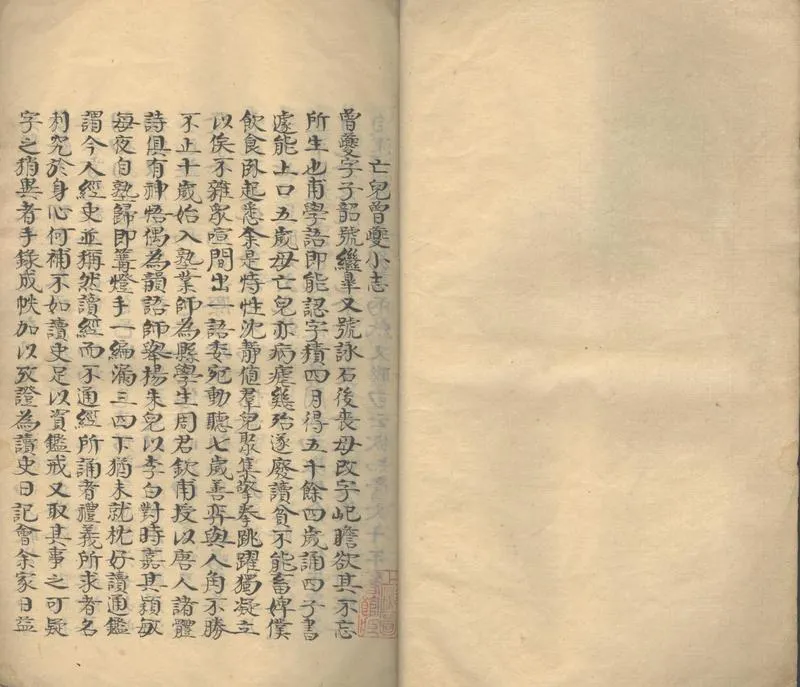 亡兒曾夔小志
曾夔字子韶號繼皋又號詠石後喪母改字屺瞻欲其不忘
所生也甫學語即能認字積四月得五千餘四歲誦四子書
遽能上口五歲母亡兒亦病瘧幾殆遂廢讀貧不能畜婢僕
飲食臥起悉余是恃性沈靜值羣兒聚集拏拳跳躍獨凝立
以俟不雜衆喧間出一語委宛動聽七歲善弈與人角不勝
不止十歲始入塾業師為縣學生周君欽甫授以唐人諸體
詩俱有神悟偶為韻語師舉楊朱兒以李白對時嘉其穎敏
每夜自塾歸即篝燈手一編漏三四下猶未就枕好讀通鑑
謂今人經史並稱然讀經而不通經所誦者禮義所求者名
利究於身心何補不如讀史足以資鑑戒又取其事之可疑
字之稍異者手錄成帙加以攷證為讀史日記會余家日益